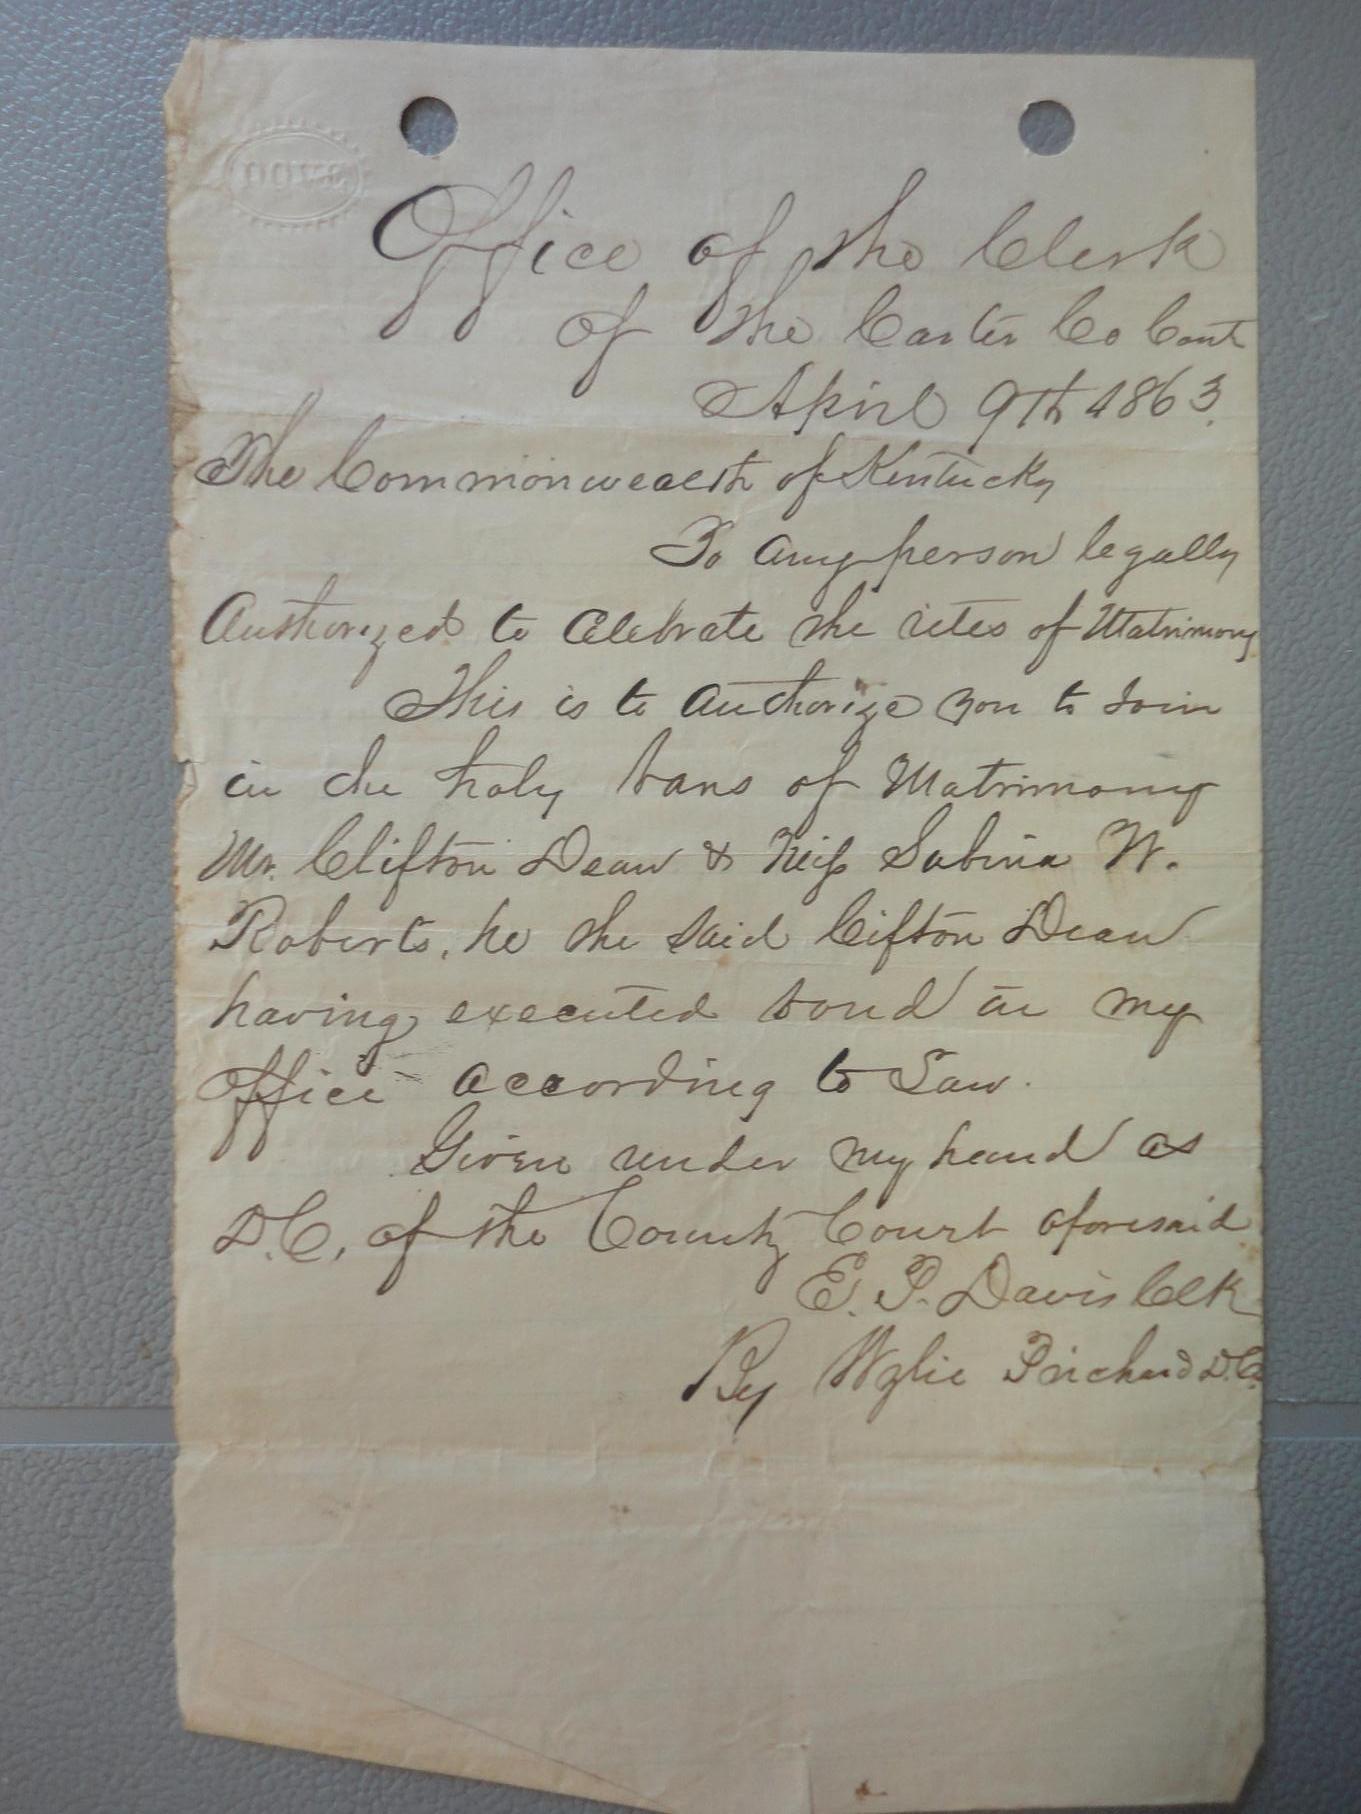 DOWE
Office of the Clerk
of the Carter Co Court
April 9th 1863.
The Commonwealth of Kentucky
To any person legally
Authorized to Celebrate the rites of Matrimony
This is to authorize you to Join
in the holy bans of Matrimony
Mr. Clifton Dean & Miss Sabina W.
Roberts, he the said Clifton Dean
having executed bond in my
office according to Law.
Given under my hand as
D.C. of the County Court aforesaid
E. P. Davis Clk
By Wylie Prichard D.C.